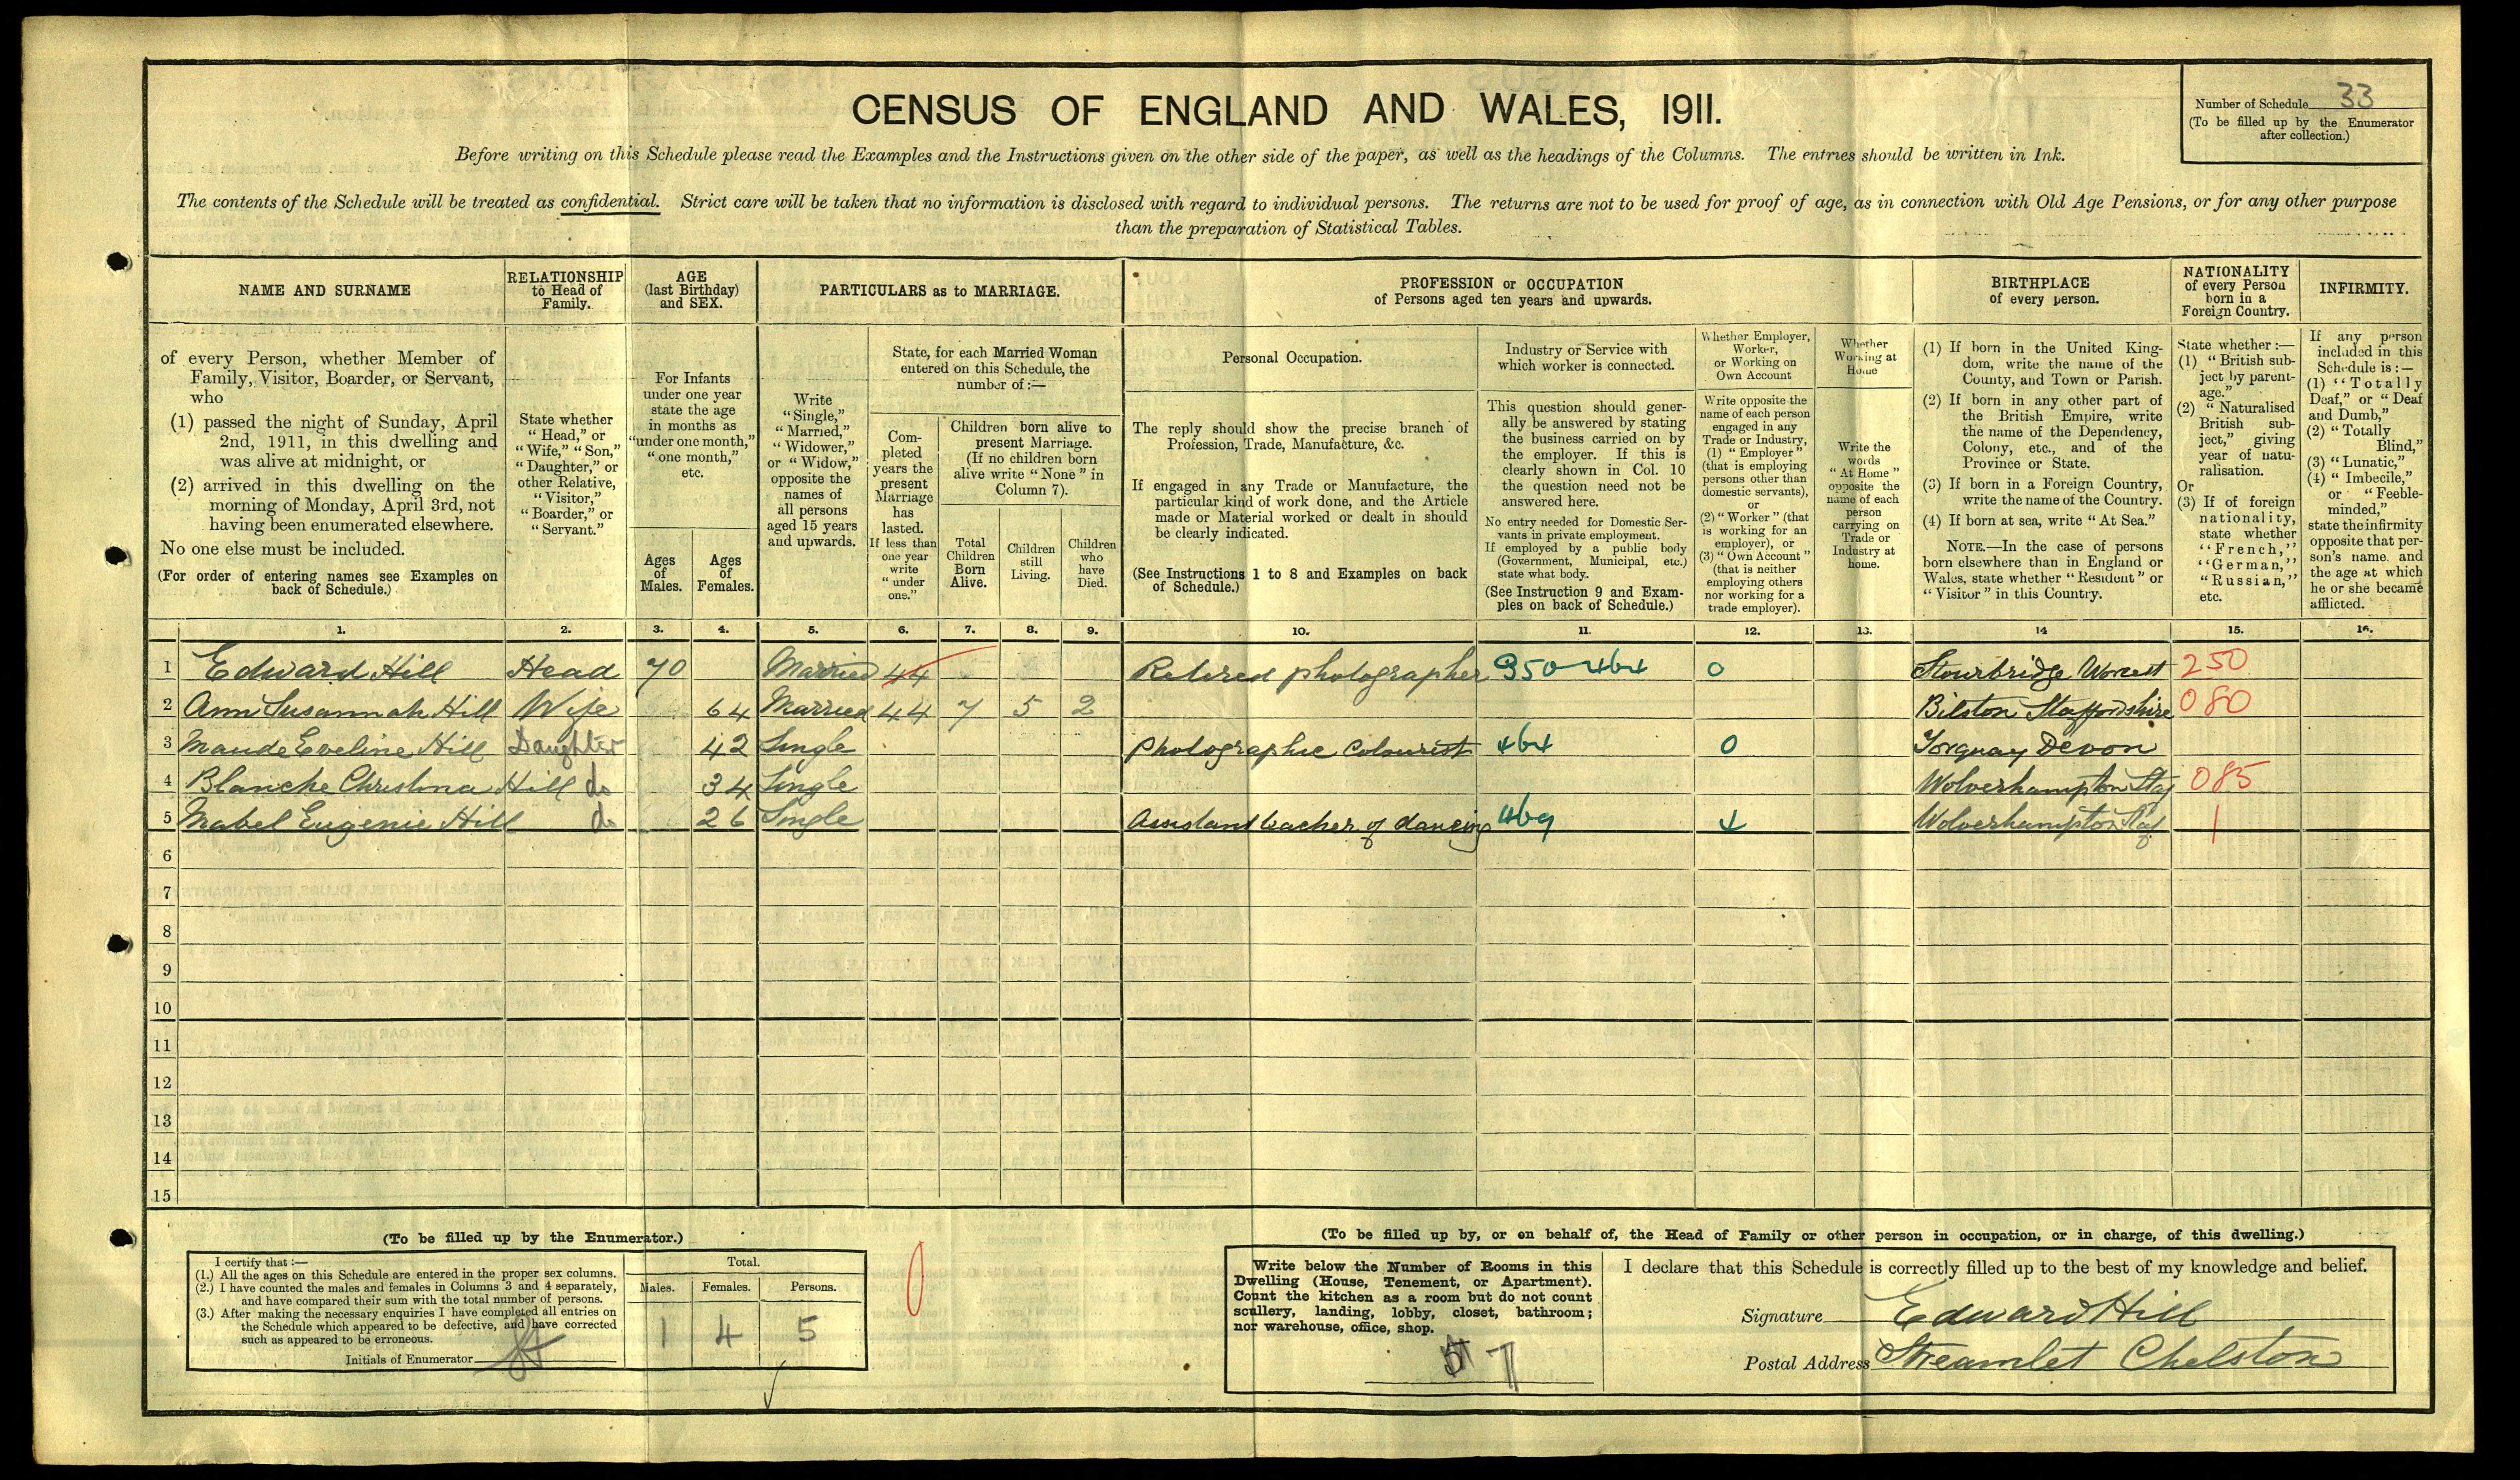 CENSUS OF ENGLAND AND WALES, 1911.
Number of Schedule 33
(To be filled up by the Enumerator
after collection.)
Before writing on this Schedule please read the Examples and the Instructions given on the other side of the paper, as well as the headings of the Columns. The entries should be written in Ink.
The contents of the Schedule will be treated as confidential. Strict care will be taken that no information is disclosed with regard to individual persons. The returns are not to be used for proof of age, as in connection with Old Age Pensions, or for any other purpose
than the preparation of Statistical Tables.
NAME AND SURNAME
of every Person, whether Member of
Family, Visitor, Boarder, or Servant,
who
(1) passed the night of Sunday, April
2nd, 1911, in this dwelling and
was alive at midnight, or
(2) arrived in this dwelling on the
morning of Monday, April 3rd, not
having been enumerated elsewhere.
No one else must be included.
(For order of entering names see Examples on
back of Schedule.)
RELATIONSHIP
to Head of
Family.
State whether
"Head," or
"Wife," "Son,"
"Daughter," or
other Relative,
"Visitor,"
"Boarder," or
"Servant."
AGE
(last Birthday)
and SEX.
For Infants
under one year
state the age
in months as
"under one month,"
"one month,"
etc.
Ages
of
Males.
Ages
of
Females.
PARTICULARS as to MARRIAGE.
Write
"Single,"
"Married,"
"Widower,"
or "Widow,"
opposite the
names of
all persons
aged 15 years
and upwards.
State, for each Married Woman
entered on this Schedule, the
number of:—
Com-
pleted
years the
present
Marriage
has
lasted.
If less than
one year
write
"under
one."
Children born alive to
present Marriage.
(If no children born
alive write "None" in
Column 7).
Total
Children
Born
Alive.
Children
still
Living.
Children
who
have
Died.
PROFESSION or OCCUPATION
of Persons aged ten years and upwards.
Personal Occupation.
The reply should show the precise branch of
Profession, Trade, Manufacture, &c.
If engaged in any Trade or Manufacture, the
particular kind of work done, and the Article
made or Material worked or dealt in should
be clearly indicated.
(See Instructions 1 to 8 and Examples on back
of Schedule.)
Industry or Service with
which worker is connected.
This question should gener-
ally be answered by stating
the business carried on by
the employer. If this is
clearly shown in Col. 10
the question need not be
answered here.
No entry needed for Domestic Ser-
vants in private employment.
If employed by a public body
(Government, Municipal, etc.)
state what body.
(See Instruction 9 and Exam-
ples on back of Schedule.)
Whether Employer,
Worker,
or Working on
Own Account
Write opposite the
name of each person
engaged in any
Trade or Industry,
(1) "Employer"
(that is employing
persons other than
domestic servants),
or
(2) "Worker" (that
is working for an
employer), or
(3) "Own Account"
(that is neither
employing others
nor working for a
trade employer).
Whether
Working at
Home
Write the
words
"At Home"
opposite the
name of each
person
carrying on
Trade or
Industry at
home.
BIRTHPLACE
of every person.
(1) If born in the United King-
dom, write the name of the
County, and Town or Parish.
(2) If born in any other part of
the British Empire, write
the name of the Dependency,
Colony, etc., and of the
Province or State.
(3) If born in a Foreign Country,
write the name of the Country.
(4) If born at sea, write "At Sea."
NOTE.—In the case of persons
born elsewhere than in England or
Wales, state whether "Resident" or
"Visitor" in this Country.
NATIONALITY
of every Person
born in a
Foreign Country.
State whether:—
(1) "British sub-
ject by parent-
age."
(2) "Naturalised
British sub-
ject," giving
year of natu-
ralisation.
Or
(3) If of foreign
nationality,
state whether
"French,"
"German,"
"Russian,"
etc.
INFIRMITY.
If any person
included in this
Schedule is:—
(1) "Totally
Deaf," or "Deaf
and Dumb,"
(2) "Totally
Blind,"
(3) "Lunatic,"
(4) "Imbecile,"
or "Feeble-
minded,"
state the infirmity
opposite that per-
son's name, and
the age at which
he or she became
afflicted.
1. 2. 3. 4. 5. 6. 7. 8. 9. 10. 11. 12. 13. 14 15. 16.
1 Edward Hill Head 70 Married 44 Retired photographer 350 464 0 Stourbridge Worcest 250
2 Ann Susannah Hill Wife 64 Married 44 7 5 2 Bilston Staffordshire 080
3 Maude Eveline Hill Daughter 42 Single Photographic Colourist 464 0 Torquay Devon
4 Blanche Christina Hill do 34 Single Wolverhampton Staf 085
5 Mabel Eugenie Hill do 26 Single Assistant teacher of dancing 469 4 Wolverhampton Staf 1
6
7
8
9
10
11
12
13
14
15
(To be filled up by the Enumerator.)
I certify that:—
(1.) All the ages on this Schedule are entered in the proper sex columns.
(2.) I have counted the males and females in Columns 3 and 4 separately,
and have compared their sum with the total number of persons.
(3.) After making the necessary enquiries I have completed all entries on
the Schedule which appeared to be defective, and have corrected
such as appeared to be erroneous.
Initials of Enumerator
Total.
Males. Females. Persons.
1 4 5
0
(To be filled up by, or on behalf of, the Head of Family or other person in occupation, or in charge, of this dwelling.)
Write below the Number of Rooms in this
Dwelling (House, Tenement, or Apartment).
Count the kitchen as a room but do not count
scullery, landing, lobby, closet, bathroom;
nor warehouse, office, shop.
7
I declare that this Schedule is correctly filled up to the best of my knowledge and belief.
Signature Edward Hill
Postal Address Streamlet Chelston